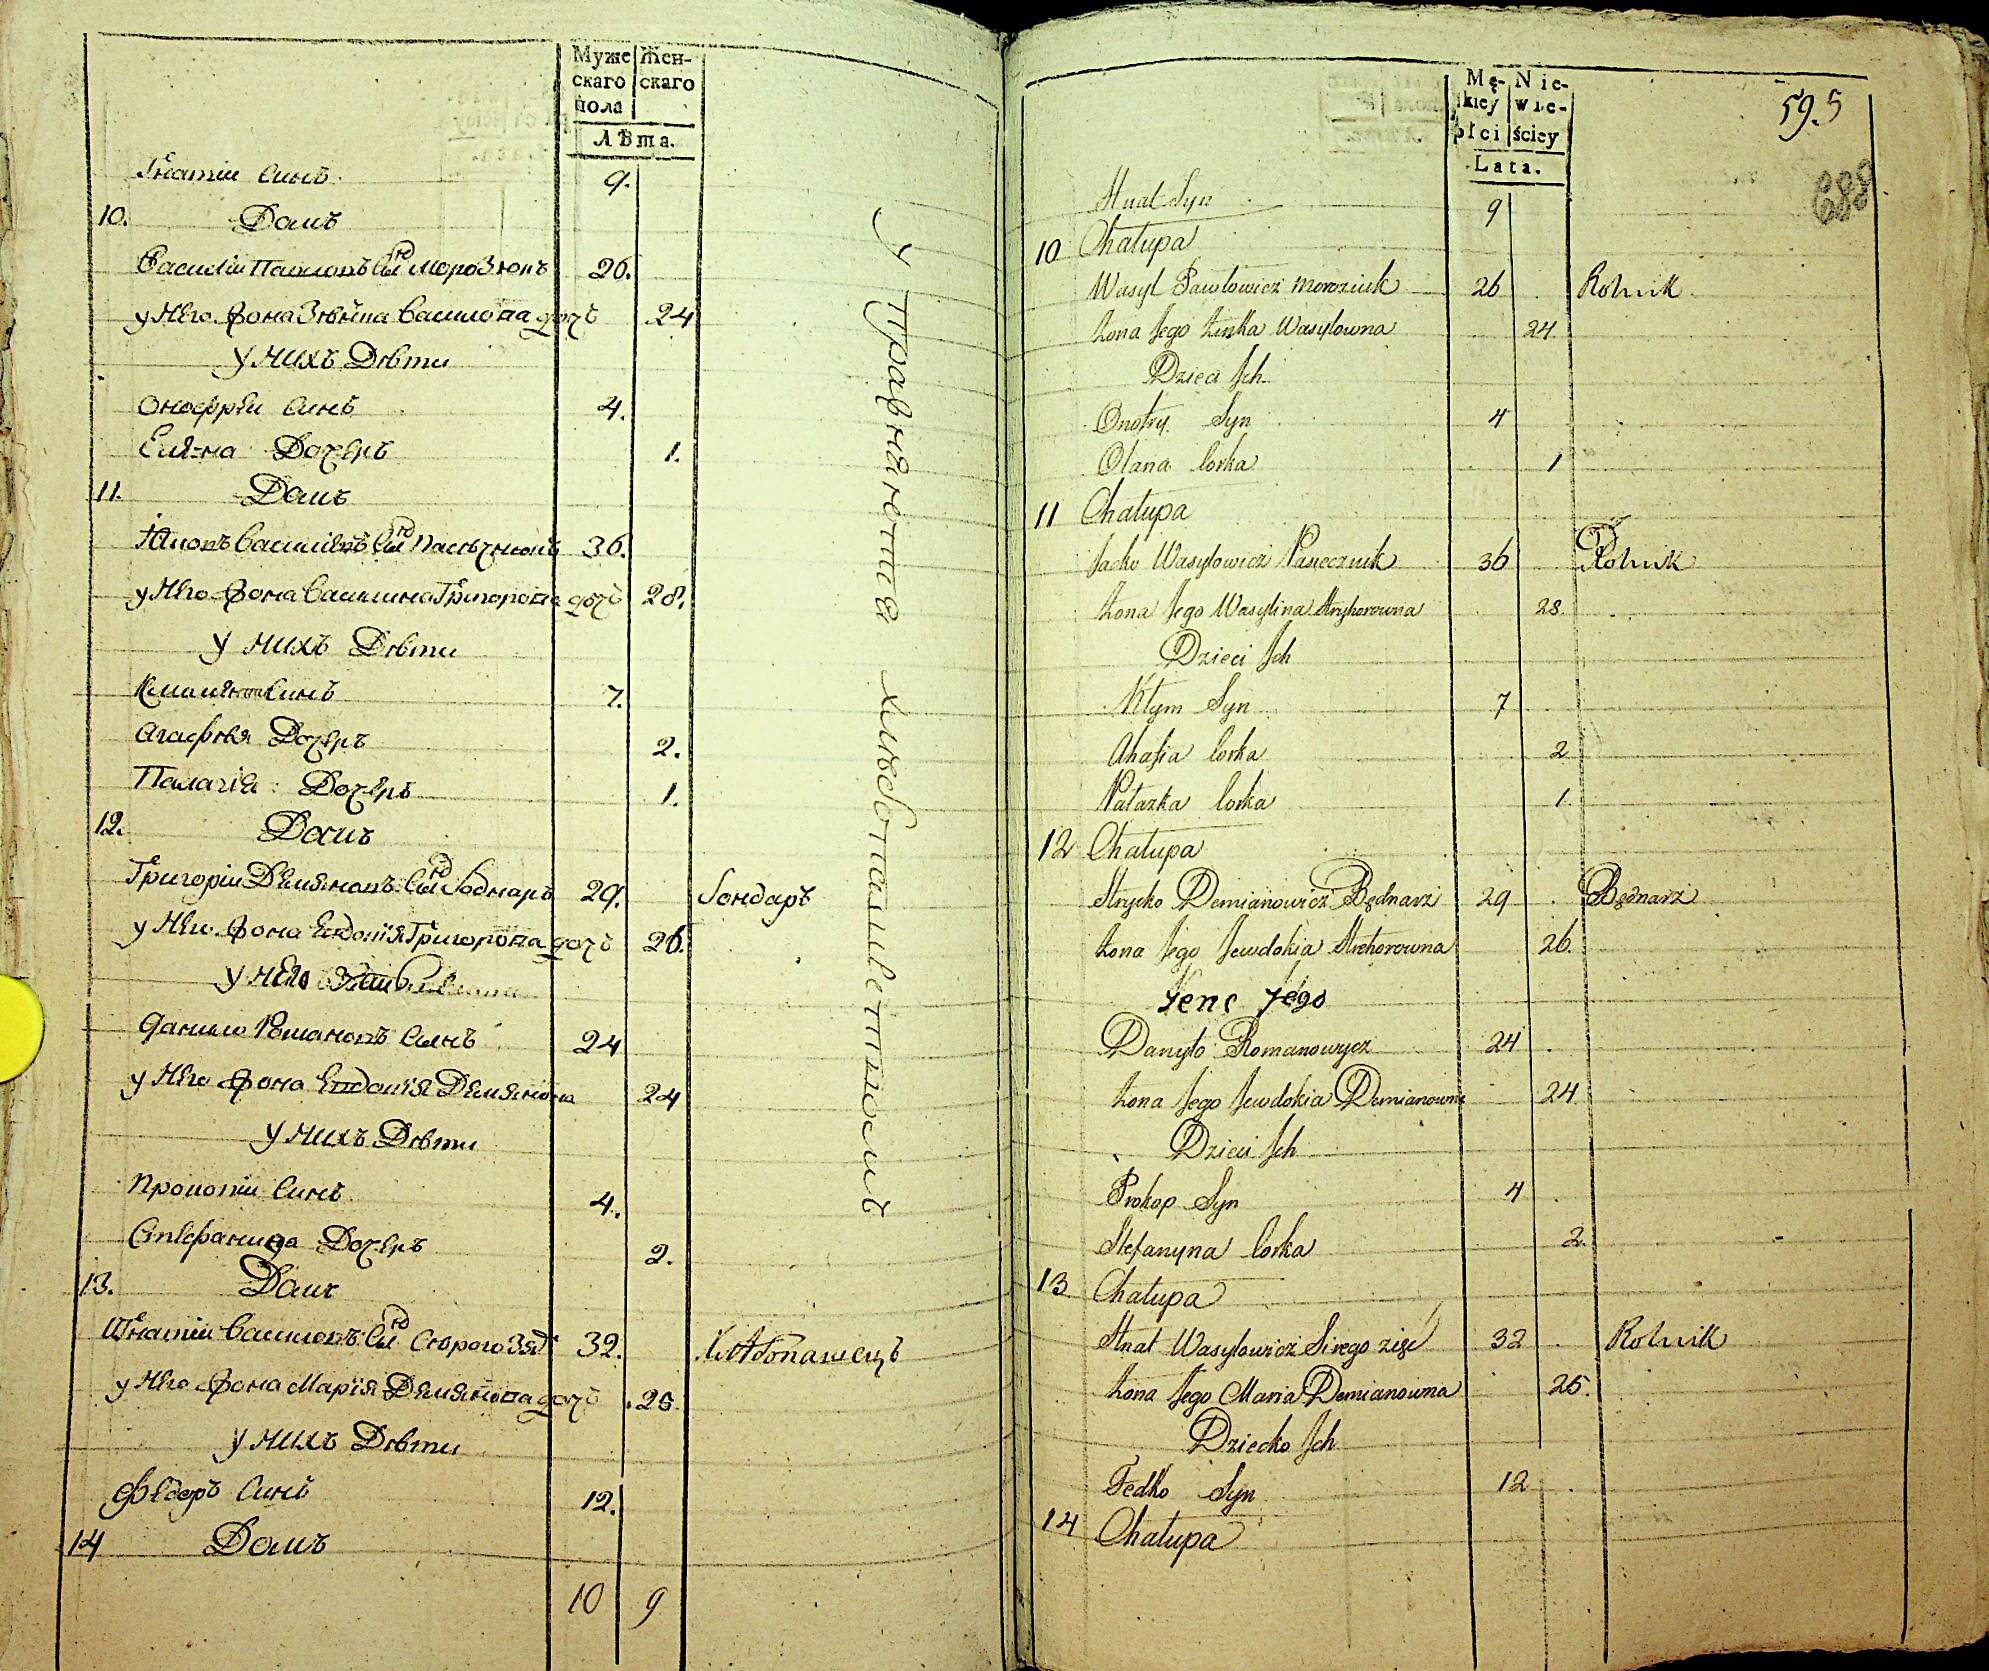 Муже Жен-
скаго скаго
пола
Лѣта.
Гнатіи Синъ 9.
10. Домъ
Василіи Павловъ Снъ Морозюкъ 26.
у Него Жона Зѣнька Василова дочь 24
У Нихъ Дѣти
Онофріи Синъ 4.
Елена Дочерь 1.
11. Домъ
Яковъ Василіевъ Снъ Пасѣчникъ 36.
у Него Жона Василина Григорова дочь 28.
У Нихъ Дѣти
Синъ 7.
Агафія Дочерь 2.
Палагія Дочерь 1.
12. Домъ
Григоріи Демяновъ Снъ Боднаръ 29. Бондаръ
у Него Жона Евдокія Григорова дочь 26.
У Него
Данило Романовъ Синъ 24
у Него Жона Евдокія Демянова 24
У Нихъ Дѣти
Прокопіи Синъ 4.
Стефанида Дочерь 2.
13. Домъ
Игнатіи Василовъ Снъ Сѣрого Зят 32. Хлѣбопашецъ
у Него Жона Марія Демянова дочь 25.
У Нихъ Дѣти
Федоръ Синъ 12.
14 Домъ
10 9
Упражняются хлѣбопашествомъ
Mę- Nie-
kiey wie-
płci ściey
Lata.
59.5
688
Hnat Syn 9
10 Chałupa
Wasyl Pawłowicz Moroziuk 26 Rolnik
Żona Jego Zinka Wasylowna 24
Dzieci Jch
Onofry Syn 4
Olana Corka 1
11 Chałupa
Jacko Wasylowicz Pasiecznik 36 Rolnik
Żona Jego Wasylina Hryhorowna 28
Dzieci Jch
Kłym Syn 7
Ahafia Corka 2
Pałazka Corka 1
12 Chałupa
Hryćko Demianowicz Bednarz 29 Bednarz
Żona Jego Jewdokia Hrehorowna 26
Żenc Jego
Danyło Romanowycz 24
Żona Jego Jewdokia Demianowna 24
Dzieci Jch
Prokop Syn 4
Stefanyna Corka 2
13 Chałupa
Hnat Wasylowicz Sirego zięć 32 Rolnik
Żona Jego Maria Demianowna 25.
Dziecko Jch
Fedko Syn 12
14 Chałupa